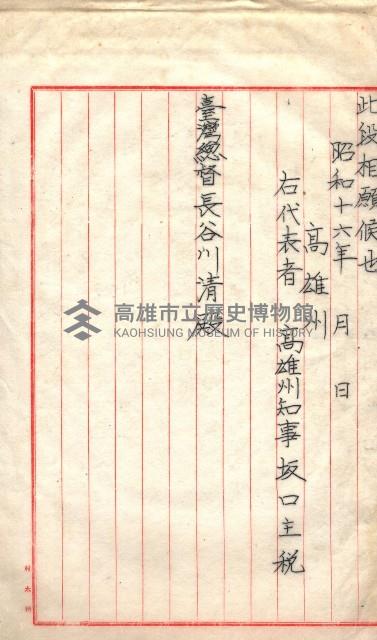 此段相願候也
昭和十六年 月 日
高雄州
右代表者 高雄州知事 坂口主税
臺灣總督長谷川清殿
高雄市立歷史博物館
KAOHSIUNG MUSEUM OF HISTORY